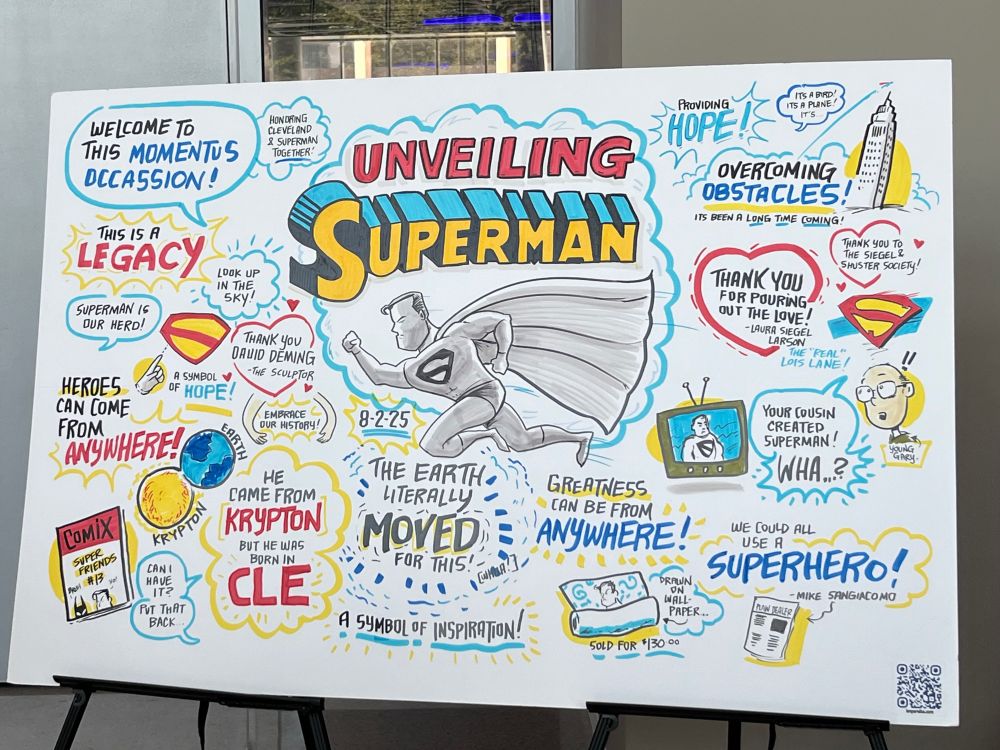 WELCOME TO
THIS MOMENTUS
OCCASSION!
HONORING
CLEVELAND
& SUPERMAN
TOGETHER!
UNVEILING
SUPERMAN
PROVIDING
HOPE!
IT'S A BIRD!
IT'S A PLANE!
IT'S
OVERCOMING
OBSTACLES!
ITS BEEN A LONG TIME COMING!
THIS IS A
LEGACY
LOOK UP
IN THE
SKY!
SUPERMAN IS
OUR HERO!
THANK YOU
DAVID DEMING
-THE SCULPTOR
A SYMBOL
OF HOPE!
HEROES
CAN COME
FROM
ANYWHERE!
EMBRACE
OUR HISTORY!
8-2-25
THANK YOU
FOR POURING
OUT THE LOVE!
-LAURA SIEGEL
LARSON
THE "REAL"
LOIS LANE!
THANK YOU TO
THE SIEGEL &
SHUSTER SOCIETY!
S
!!
YOUR COUSIN
CREATED
SUPERMAN!
WHA..?
YOUNG
GARY.
EARTH
KRYPTON
COMIX
SUPER
FRIENDS
#13
CAN I
HAVE
IT?
PUT THAT
BACK...
HE
CAME FROM
KRYPTON
BUT HE WAS
BORN IN
CLE
THE EARTH
LITERALLY
MOVED
FOR THIS!
[WHOA!]
A SYMBOL OF INSPIRATION!
GREATNESS
CAN BE FROM
ANYWHERE!
DRAWN
ON
WALL-
PAPER...
SOLD FOR $130.00
WE COULD ALL
USE A
SUPERHERO!
- MIKE SANGIACOMO
PLAIN DEALER